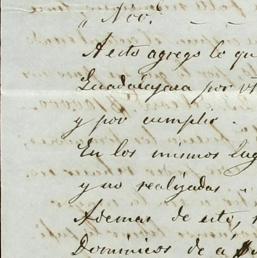 „ Nov.ᵉ
A esto agrego lo qu
Guadalajara por vt
y por cumplir.
En los mismos lug
y no realizadas.
Ademas de esto,
Dominicos de a